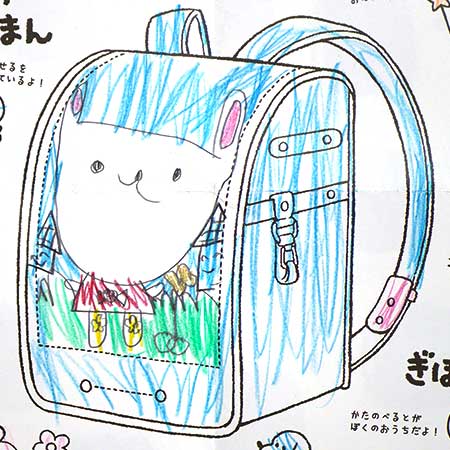 まん
せるを
ているよ！
ぎぼ
かたのべるとが
ぼくのおうちだよ！